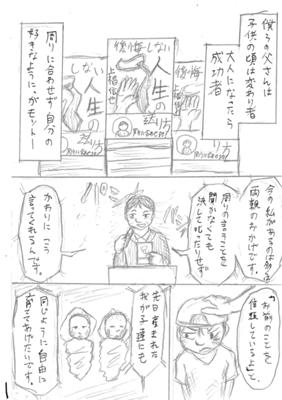 僕らの父さんは
子供の頃は変わり者
大人になったら
成功者
周りに合わせず自分の
好きなように、がモットー
後悔しない
人生の
送り方
今の私があるのは
両親のおかげです。
周りの言うことを
聞かなくても
決して叱ったりせず
かわりにこう
言ってくれるんです。
「お前のことを
信頼しているよ」と。
先日産まれた
我が子達にも
同じように自由に
育ててあげたいです。
1